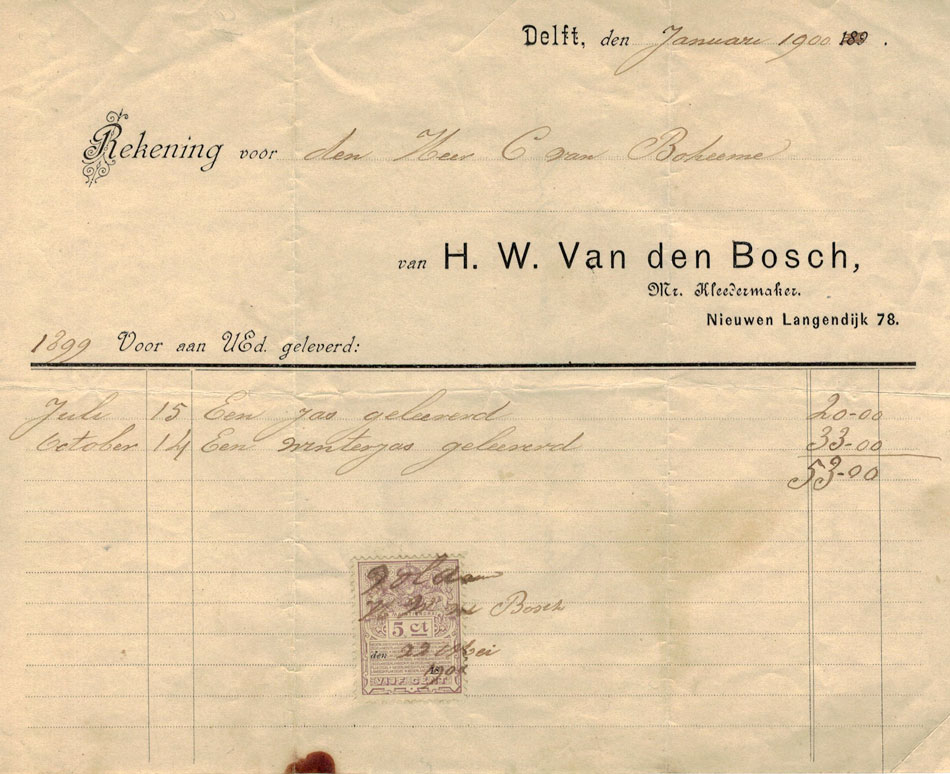 Delft, den Januari 1900 189 .
Rekening voor den Heer C van Boheeme
van H. W. Van den Bosch,
Mr. Kleedermaker.
Nieuwen Langendijk 78.
1899 Voor aan UEd. geleverd:
Juli 15 Een jas geleeverd 20-00
October 14 Een winterjas geleeverd 33-00
53-00
Voldaan
Bosch
5 ct
den 22 Mei
VIJF CENT